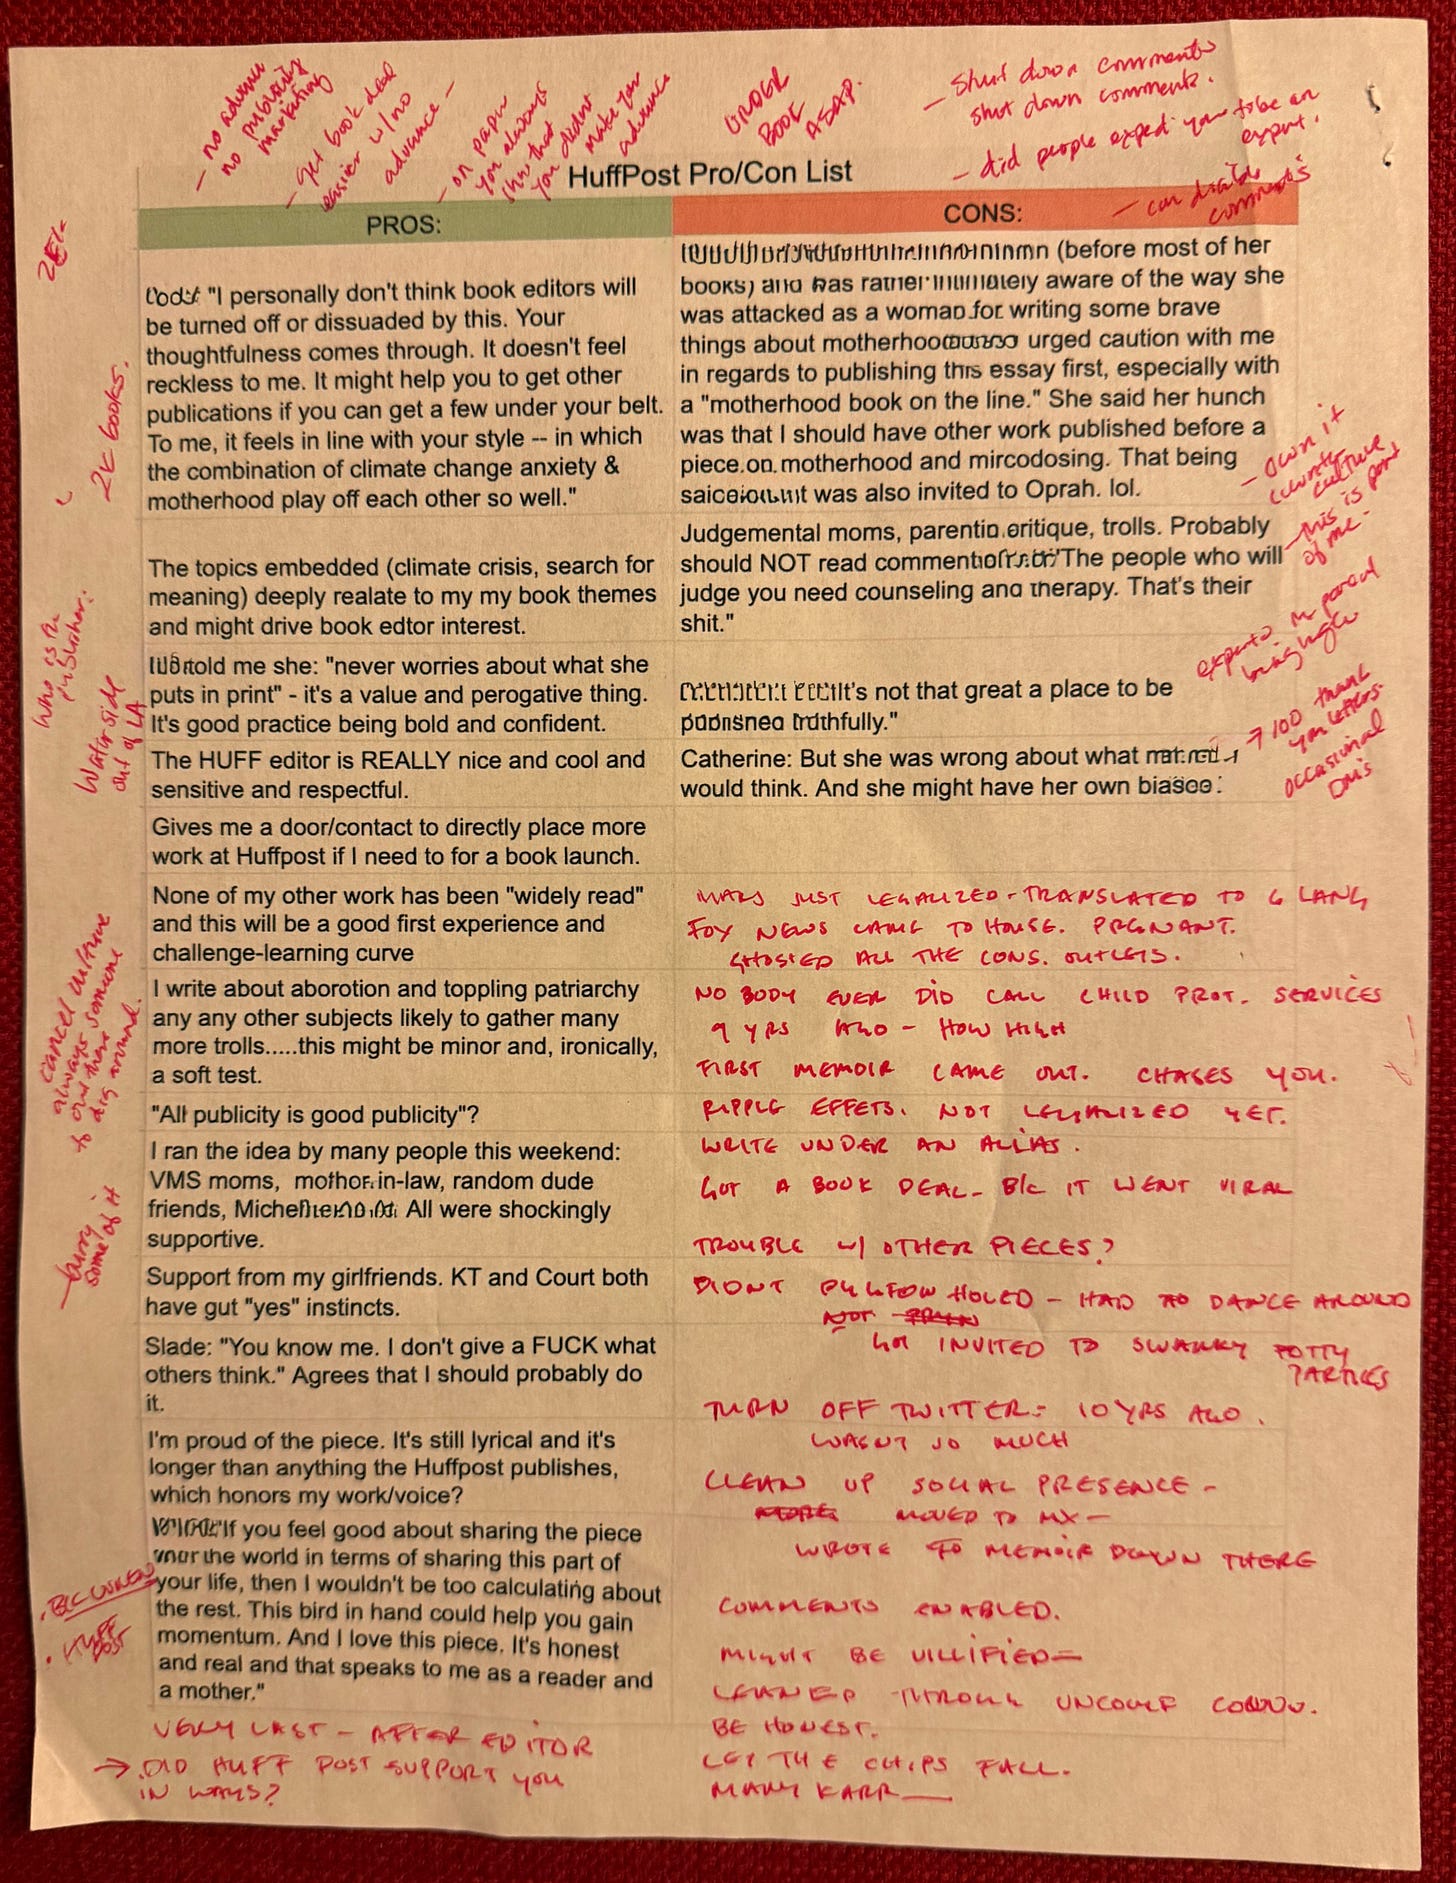 - no advance
no publicity
marketing
- get book deal
easier w/no
advance -
- on paper
you always
show that
you didn't
make your
advance
ORDER
BOOK
ASAP.
- shut down comments
shut down comments.
- did people expect you to be an
expert.
- can disable
comments
HuffPost Pro/Con List
PROS:
"I personally don't think book editors will
be turned off or dissuaded by this. Your
thoughtfulness comes through. It doesn't feel
reckless to me. It might help you to get other
publications if you can get a few under your belt.
To me, it feels in line with your style -- in which
the combination of climate change anxiety &
motherhood play off each other so well."
The topics embedded (climate crisis, search for
meaning) deeply realate to my my book themes
and might drive book edtor interest.
told me she: "never worries about what she
puts in print" - it's a value and perogative thing.
It's good practice being bold and confident.
The HUFF editor is REALLY nice and cool and
sensitive and respectful.
Gives me a door/contact to directly place more
work at Huffpost if I need to for a book launch.
None of my other work has been "widely read"
and this will be a good first experience and
challenge-learning curve
I write about aborotion and toppling patriarchy
any any other subjects likely to gather many
more trolls.....this might be minor and, ironically,
a soft test.
"All publicity is good publicity"?
I ran the idea by many people this weekend:
VMS moms, mother-in-law, random dude
friends, All were shockingly
supportive.
Support from my girlfriends. KT and Court both
have gut "yes" instincts.
Slade: "You know me. I don't give a FUCK what
others think." Agrees that I should probably do
it.
I'm proud of the piece. It's still lyrical and it's
longer than anything the Huffpost publishes,
which honors my work/voice?
"If you feel good about sharing the piece
the world in terms of sharing this part of
your life, then I wouldn't be too calculating about
the rest. This bird in hand could help you gain
momentum. And I love this piece. It's honest
and real and that speaks to me as a reader and
a mother."
VERY LAST - AFTER EDITOR
→ . DID HUFF POST SUPPORT YOU
IN WAYS?
CONS:
(before most of her
books) and was rather intimately aware of the way she
was attacked as a woman for writing some brave
things about motherhood urged caution with me
in regards to publishing this essay first, especially with
a "motherhood book on the line." She said her hunch
was that I should have other work published before a
piece on motherhood and mircodosing. That being
said was also invited to Oprah. lol.
Judgemental moms, parentin critique, trolls. Probably
should NOT read comment "The people who will
judge you need counseling and therapy. That's their
shit."
It's not that great a place to be
published truthfully."
Catherine: But she was wrong about what
would think. And she might have her own biases.
JUST LEGALIZED - TRANSLATED TO 6 LANG
FOX NEWS CAME TO HOUSE. PREGNANT.
GHOSTED ALL THE CONS. OUTLETS.
NOBODY EVER DID CALL CHILD PROT. SERVICES
9 YRS AGO - HOW HIGH
FIRST MEMOIR CAME OUT. CHASES YOU.
RIPPLE EFFETS. NOT LEGALIZED YET.
WRITE UNDER AN ALIAS.
GOT A BOOK DEAL - B/C IT WENT VIRAL
TROUBLE W/ OTHER PIECES?
DIDNT HOLED - HAD TO DANCE AROUND
NOT
GOT INVITED TO SWANKY POTTY
PARTIES
TURN OFF TWITTER - 10 YRS AGO.
WASNT SO MUCH
CLEAN UP SOCIAL PRESENCE -
MORE MOVED TO MX -
WROTE MEMOIR DOWN THERE
COMMENTS ENABLED.
MIGHT BE VILLIFIED -
LEARNED THROUGH
BE HONEST.
LET THE CHIPS FALL.
MARY KARR
2K books.
who is the
publisher:
Waterside
out of LA
cancel culture
always someone
out there
to dig around.
- bury
some of it
. HUFF
POST
- own it
culture
- this is part
of me -
experts in parent
being high
→ 100 thank
you letters.
occasional
DM's